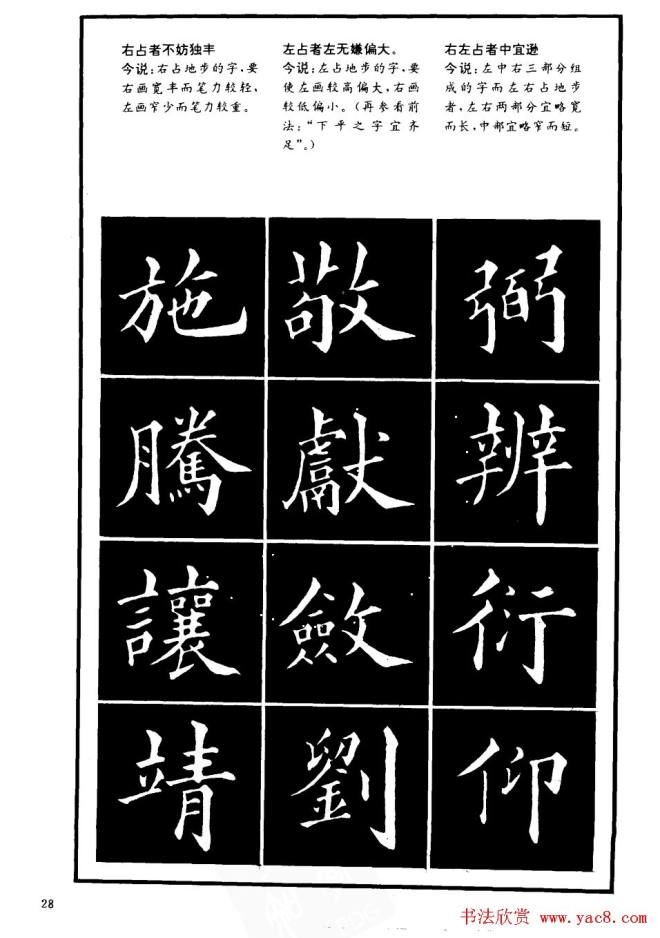 右占者不妨独丰
今说：右占地步的字，要
右画宽丰而笔力较轻，
左画窄少而笔力较重。
左占者左无嫌偏大。
今说：左占地步的字，要
使左画较高偏大，右画
较低偏小。（再参看前
法：“下平之字宜齐
足”。）
右左占者中宜逊
今说：左中右三部分组
成的字而左右占地步
者，左右两部分宜略宽
而长，中部宜略窄而短。
施 敬 弼
騰 獻 辨
讓 斂 衍
靖 劉 仰
28
书法欣赏 www.yac8.com